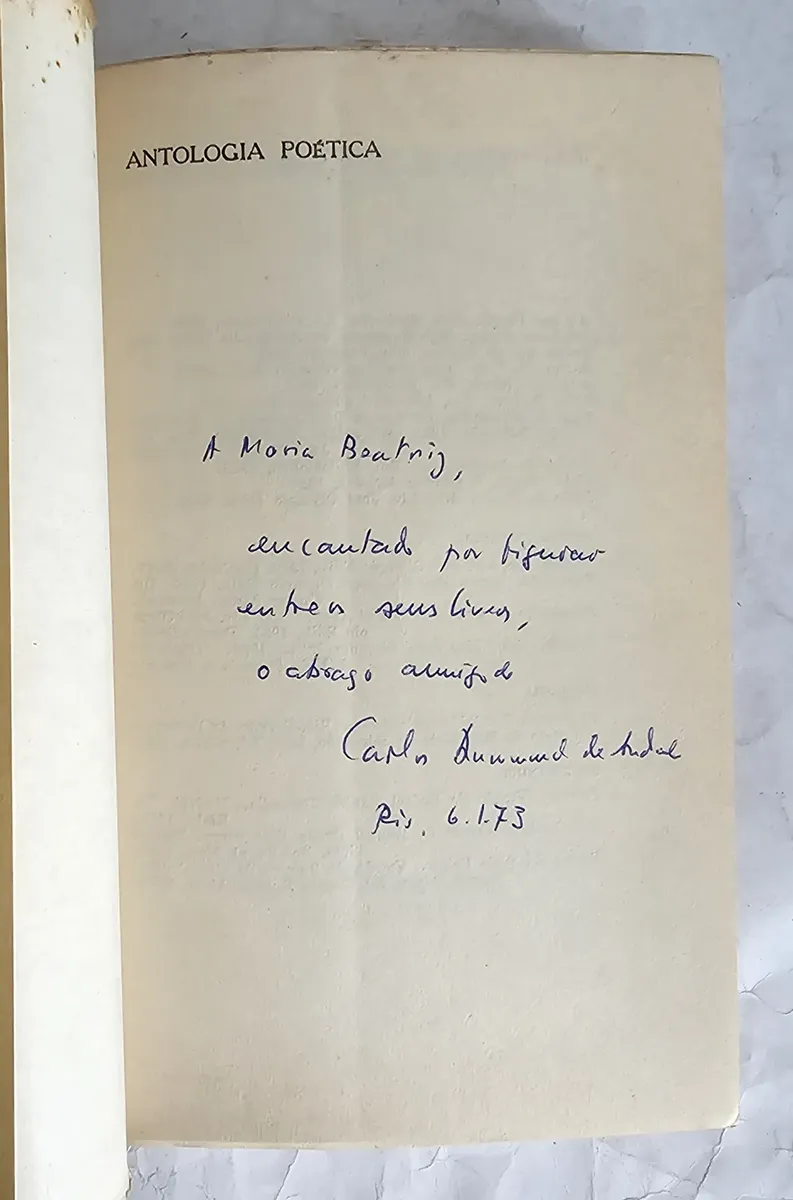 ANTOLOGIA POÉTICA
A Maria Beatriz,
encantado por figurar
entre os seus livros,
o abraço amigo de
Carlos Drummond de Andrade
Rio, 6.1.73